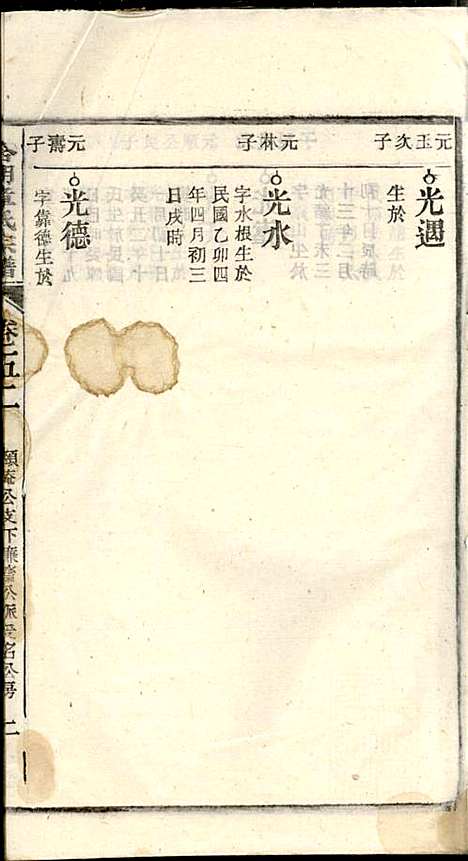 元玉次子
光遇
生於
元林子
光水
字水根生於
民國乙卯四
年四月初三
日戌時
元壽子
光德
字靠德生於
童氏宗譜
卷之五十一
頤菴公支下廉